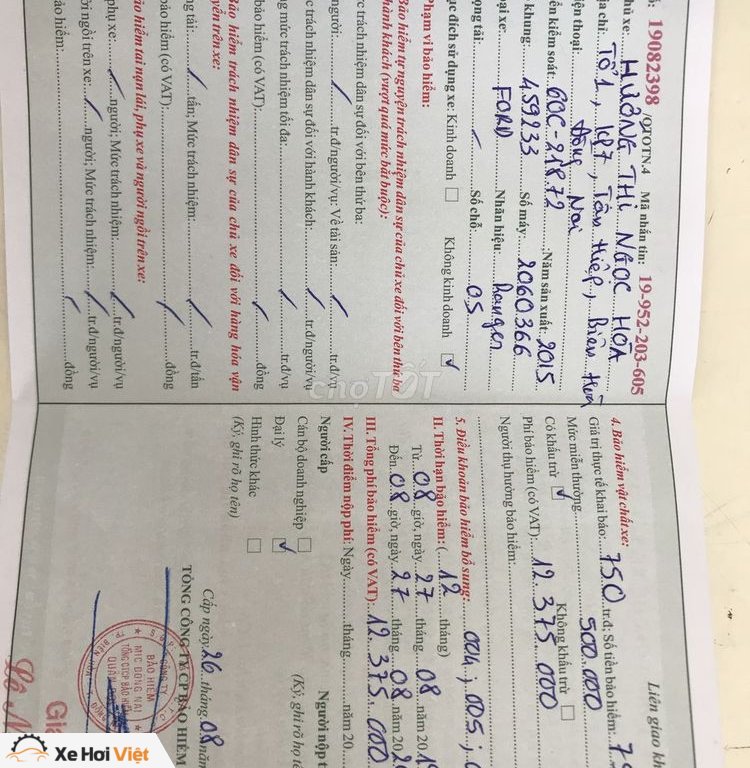 19082398 /QTOTN.4 Mã nhắn tin: 19-952-203-605
hủ xe: HƯỜNG THỊ NGỌC HÒA
ịa chỉ: Tổ 1, KP7, Tân Hiệp, Biên Hoà
iện thoại: Đồng Nai
ển kiểm soát: 60C-21872 ;Năm sản xuất: 2015
khung: 459233 Số máy: 2060366
ại xe: FORD Nhãn hiệu: Ranger
ọng tải: / Số chỗ: 05
ục đích sử dụng xe: Kinh doanh ☐ Không kinh doanh ☑
Phạm vi bảo hiểm:
Bảo hiểm tự nguyện trách nhiệm dân sự của chủ xe đối với bên thứ ba
hành khách (vượt quá mức bắt buộc):
c trách nhiệm dân sự đối với bên thứ ba:
người: / tr.đ/người/vụ; Về tài sản: / tr.đ/vụ
c trách nhiệm dân sự đối với hành khách: / tr.đ/người/vụ
g mức trách nhiệm tối đa: / tr.đ/vụ
bảo hiểm (có VAT): / đồng
ảo hiểm trách nhiệm dân sự của chủ xe đối với hàng hóa vận
yển trên xe:
ng tải: / tấn; Mức trách nhiệm: / tr.đ/tấn
bảo hiểm (có VAT): / đồng
ảo hiểm tai nạn lái, phụ xe và người ngồi trên xe:
phụ xe: / người; Mức trách nhiệm: / tr.đ/người/vụ
ời ngồi trên xe: / người; Mức trách nhiệm: / tr.đ/người/vụ
ảo hiểm: / đồng
Liên giao kh
4. Bảo hiểm vật chất xe:
Giá trị thực tế khai báo: 750 tr.đ; Số tiền bảo hiểm: 75
Mức miễn thường: 500.000
Có khấu trừ ☑ Không khấu trừ ☐
Phí bảo hiểm (có VAT): 12.375.000
Người thụ hưởng bảo hiểm:
5. Điều khoản bảo hiểm bổ sung: 004; 005;
II. Thời hạn bảo hiểm: ( 12 tháng)
Từ 08 giờ, ngày 27 tháng 08 năm 2019
Đến 08 giờ, ngày 27 tháng 08 năm 20
III. Tổng phí bảo hiểm (có VAT): 12.375.000
IV. Thời điểm nộp phí: Ngày tháng năm 20
Người cấp Người nộp t
Cán bộ doanh nghiệp ☐ (Ký, ghi rõ họ tê
Đại lý ☑
Hình thức khác ☐
(Ký, ghi rõ họ tên)
Cấp ngày 26 tháng 08 năm
TỔNG CÔNG TY CP BẢO HIỂM
BẢO HIỂM
MIC ĐỒNG NAI
TỔNG CTCP BẢO HIỂM
QUÂN
Gi
Lê N
chợTỐT
Xe Hơi Việt